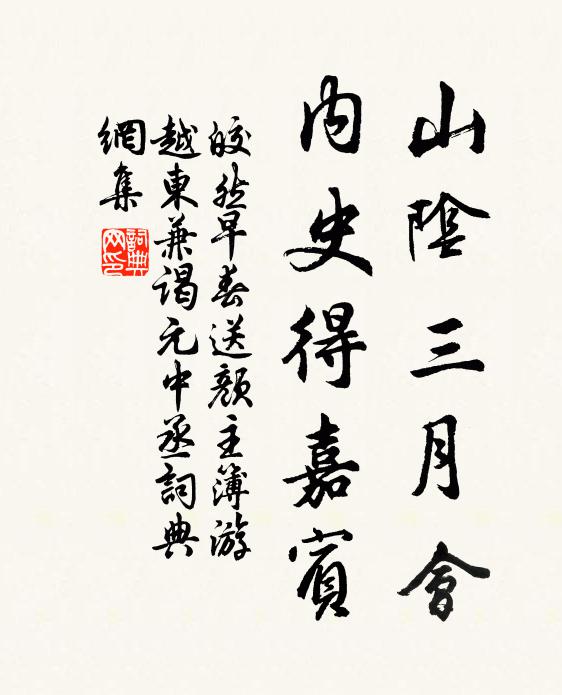 山陰三月會
内史得嘉賓
皎然早春送顏主簿游
越東兼謁元中丞詞典
網集
詞典
网印